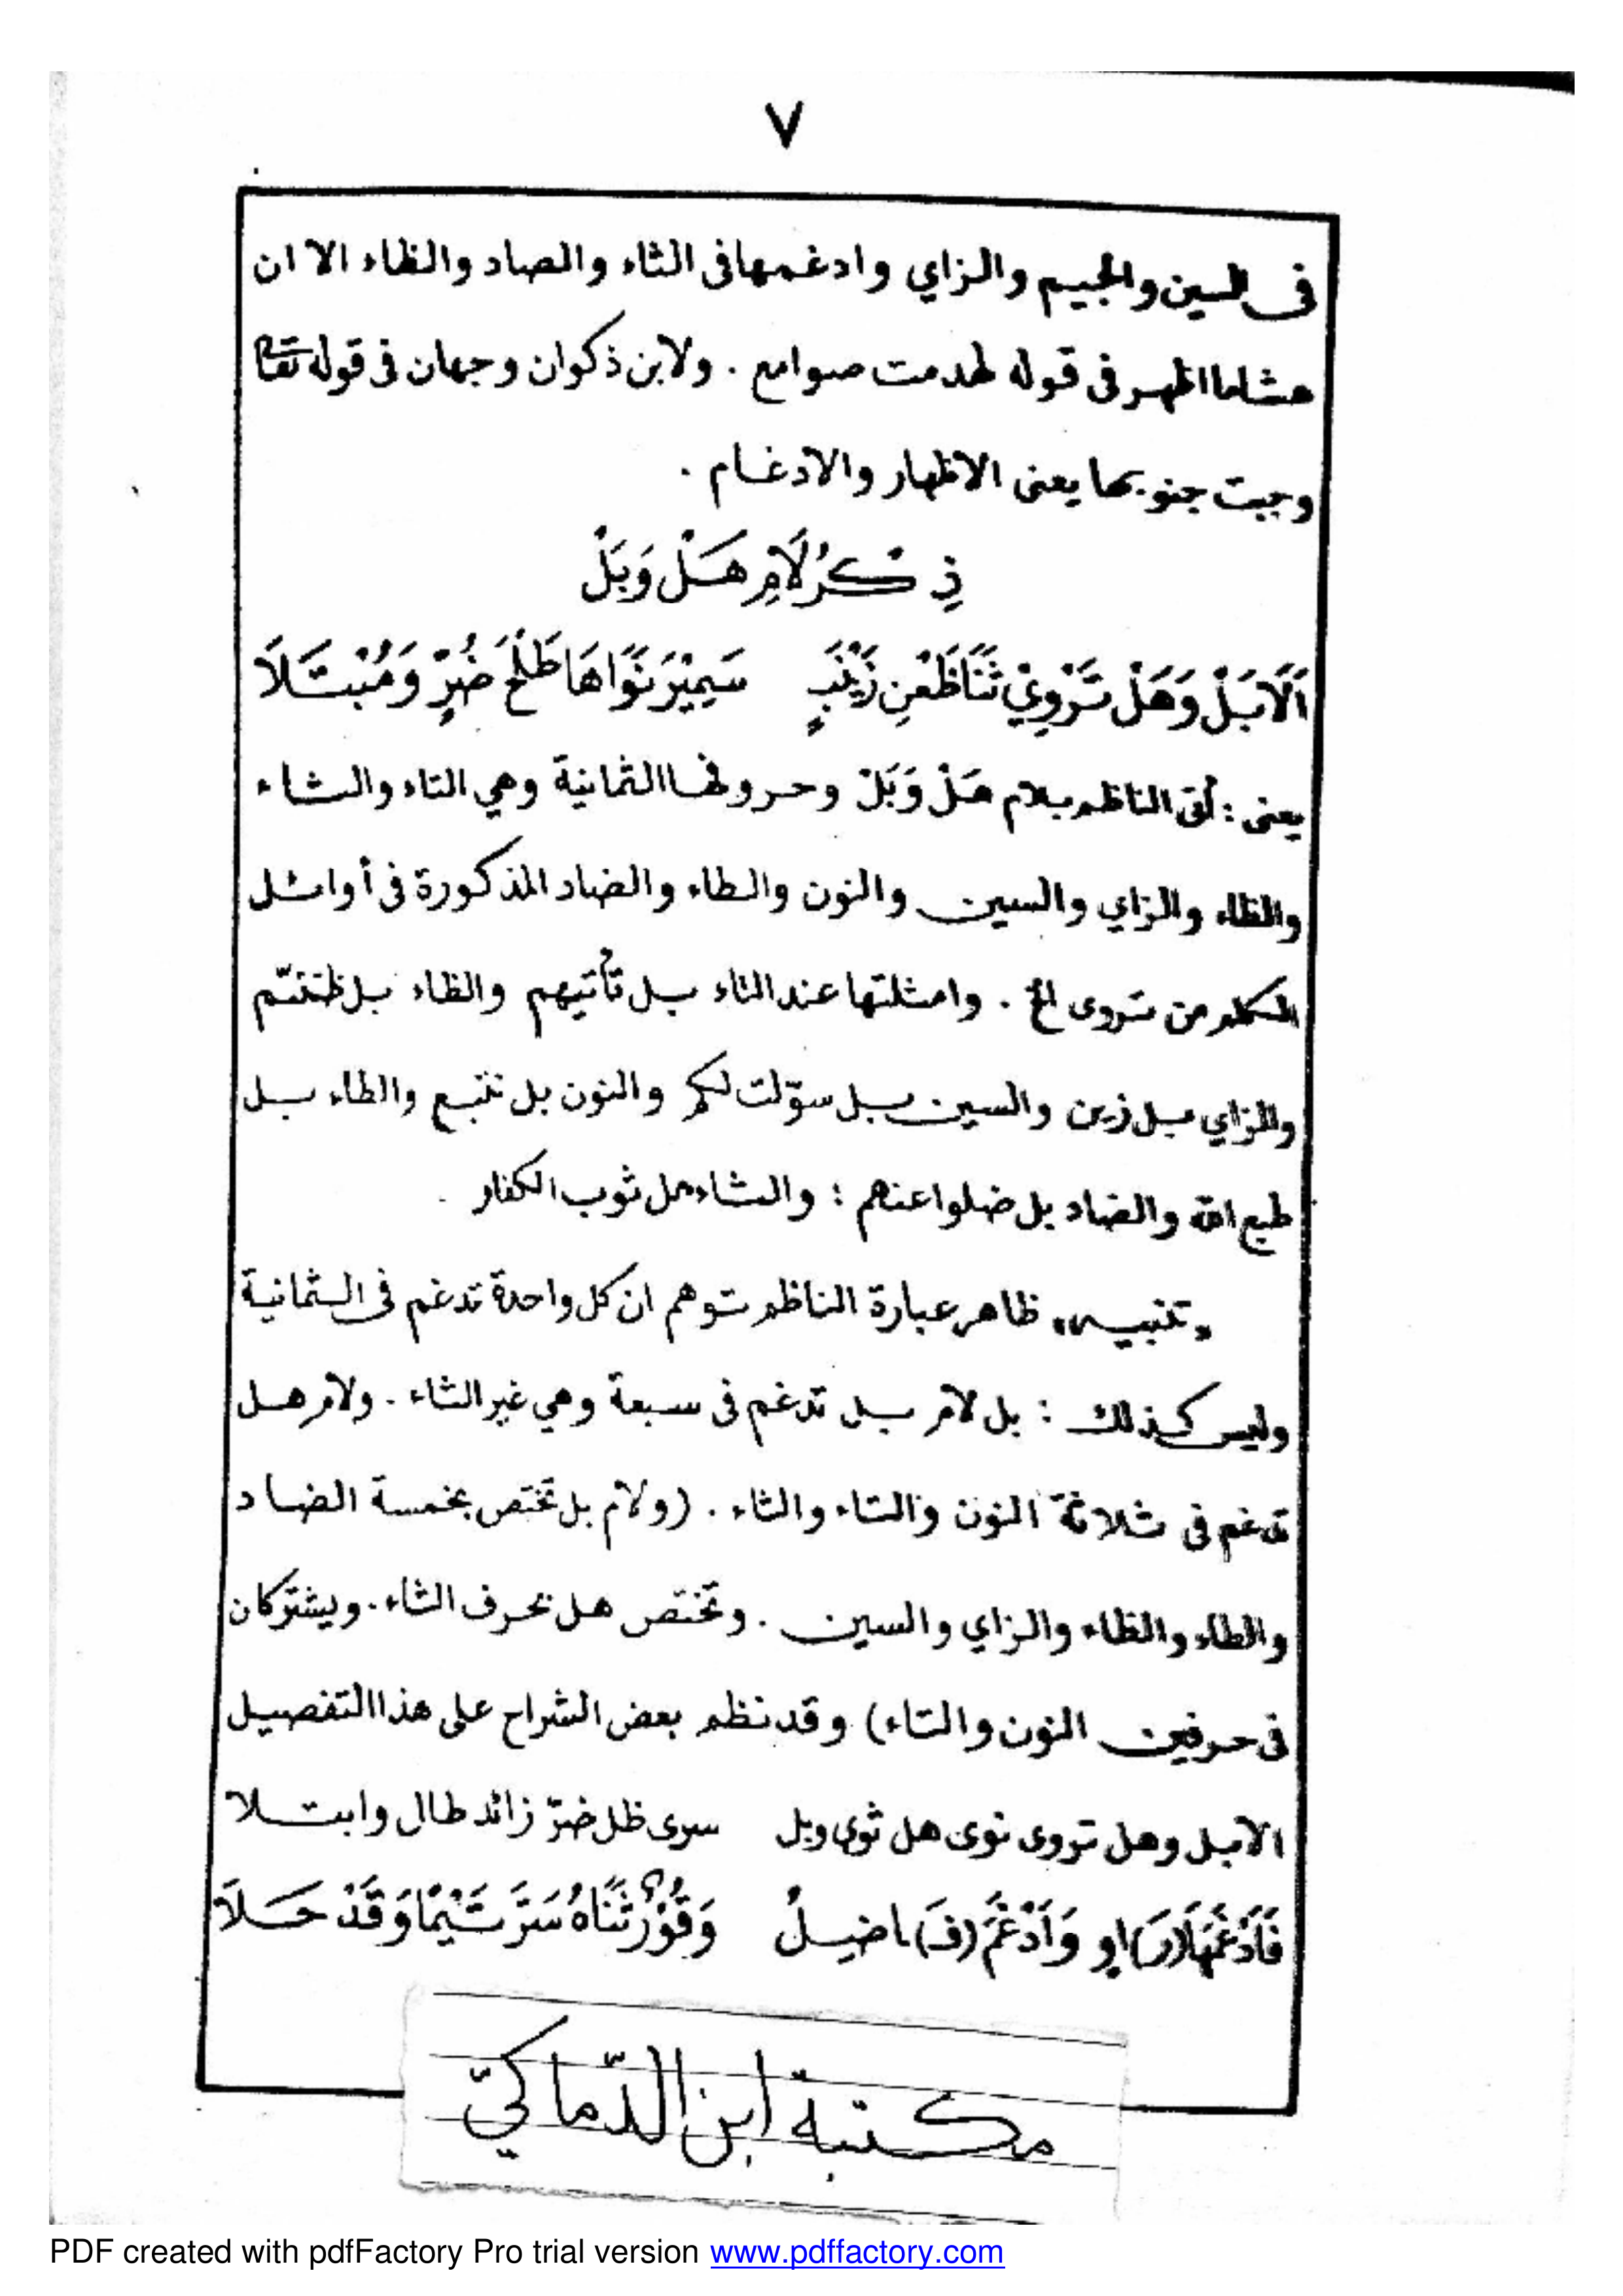 ٧
فى السين والجيم والزاي وادغمها فى الثاء والصاد والظاء الا ان
هشاما اظهر فى قوله لهدمت صوامع . ولابن ذكوان وجهان فى قوله تعالى
وجبت جنوبها يعنى الاظهار والادغام .
ذِكْرُ لَامِ هَلْ وَبَلْ
اَلَا بَلْ وَهَلْ تَرْوِيْ ثَنَا ظَعْنِ زَيْنَبٍ سَمِيْرَ نَوَاهَا طَلْحَ ضُرٍّ وَمُبْتَلَا
يعنى : أتى الناظم بلام هَلْ وَبَلْ وحروفها الثمانية وهي التاء والثاء
والظاء والزاي والسين والنون والطاء والضاد المذكورة فى أوائل
الكلم من تروى الخ . وامثلتها عند التاء بل تأتيهم والظاء بل ظننتم
والزاي بل زين والسين بل سوّلت لكم والنون بل نتبع والطاء بل
طبع الله والضاد بل ضلوا عنهم : والثاء هل ثوب الكفار .
"تنبيه" ظاهر عبارة الناظم توهم ان كل واحدة تدغم فى الثمانية
وليس كذلك : بل لام بل تدغم فى سبعة وهي غير الثاء . ولام هل
تدغم فى ثلاثة النون والتاء والثاء . (ولام بل تختص بخمسة الضاد
والطاء والظاء والزاي والسين . وتختص هل بحرف الثاء . ويشتركان
فى حرفين النون والتاء) وقد نظم بعض الشراح على هذا التفصيل
الا بل وهل تروى نوى هل ثوى وبل سرى ظل ضرّ زائد طال وابتلا
فَأَدْغَمَهَا (رَ)اوٍ وَأَدْغَمَ (فَ)اضِلٌ وَقُوْرٌ ثَنَاهُ سَرَّ تَيْمًا وَقَدْ حَلَا
مكتبة ابن الدّماكيّ
PDF created with pdfFactory Pro trial version www.pdffactory.com